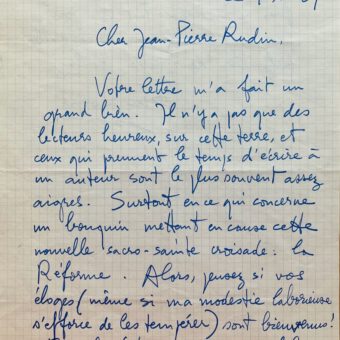 Cher Jean-Pierre Rudin,
Votre lettre m'a fait un
grand bien. Il n'y a pas que des
lecteurs heureux, sur cette terre, et
ceux qui prennent le temps d'écrire à
un auteur sont le plus souvent assez
aigres. Surtout en ce qui concerne
un bouquin mettant en cause cette
nouvelle sacro-sainte croisade : la
Réforme. Alors, pensez si vos
éloges (même si ma modestie laborieuse
s'efforce de les tempérer) sont bienvenus!